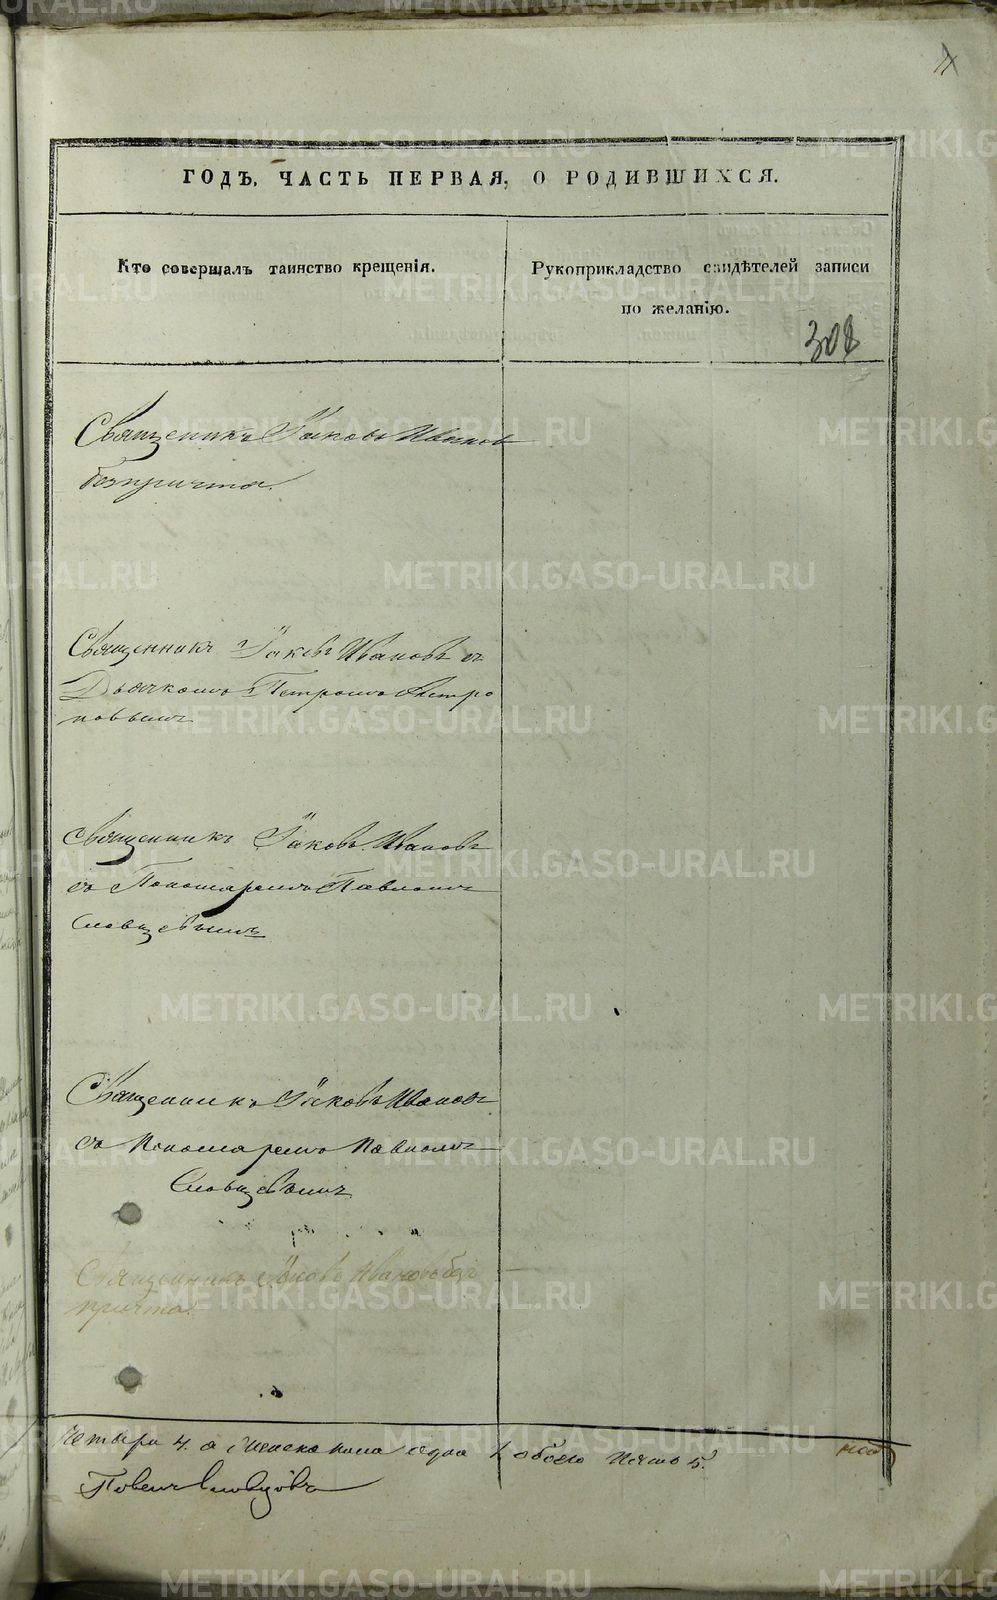 ГОДЪ, ЧАСТЬ ПЕРВАЯ, О РОДИВШИХСЯ.
Кто совершалъ таинство крещенія.
Рукоприкладство свидѣтелей записи
по желанію.
308
Священикъ Іаковъ Иванов
безпричта.
Священникъ Іаковъ Ивановъ съ
Дьячкомъ Петромъ
Священникъ Іаковъ Ивановъ
съ Пономаремъ Павломъ
Словцевымъ
Священникъ Іаковъ Ивановъ
съ Пономаремъ Павломъ
Словцевымъ
Священникъ Іаковъ Ивановъ без
причта.
Четыри 4. а женска пола одна 1, обоего Пять 5.
Павелъ Словцовъ
METRIKI.GASO-URAL.RU